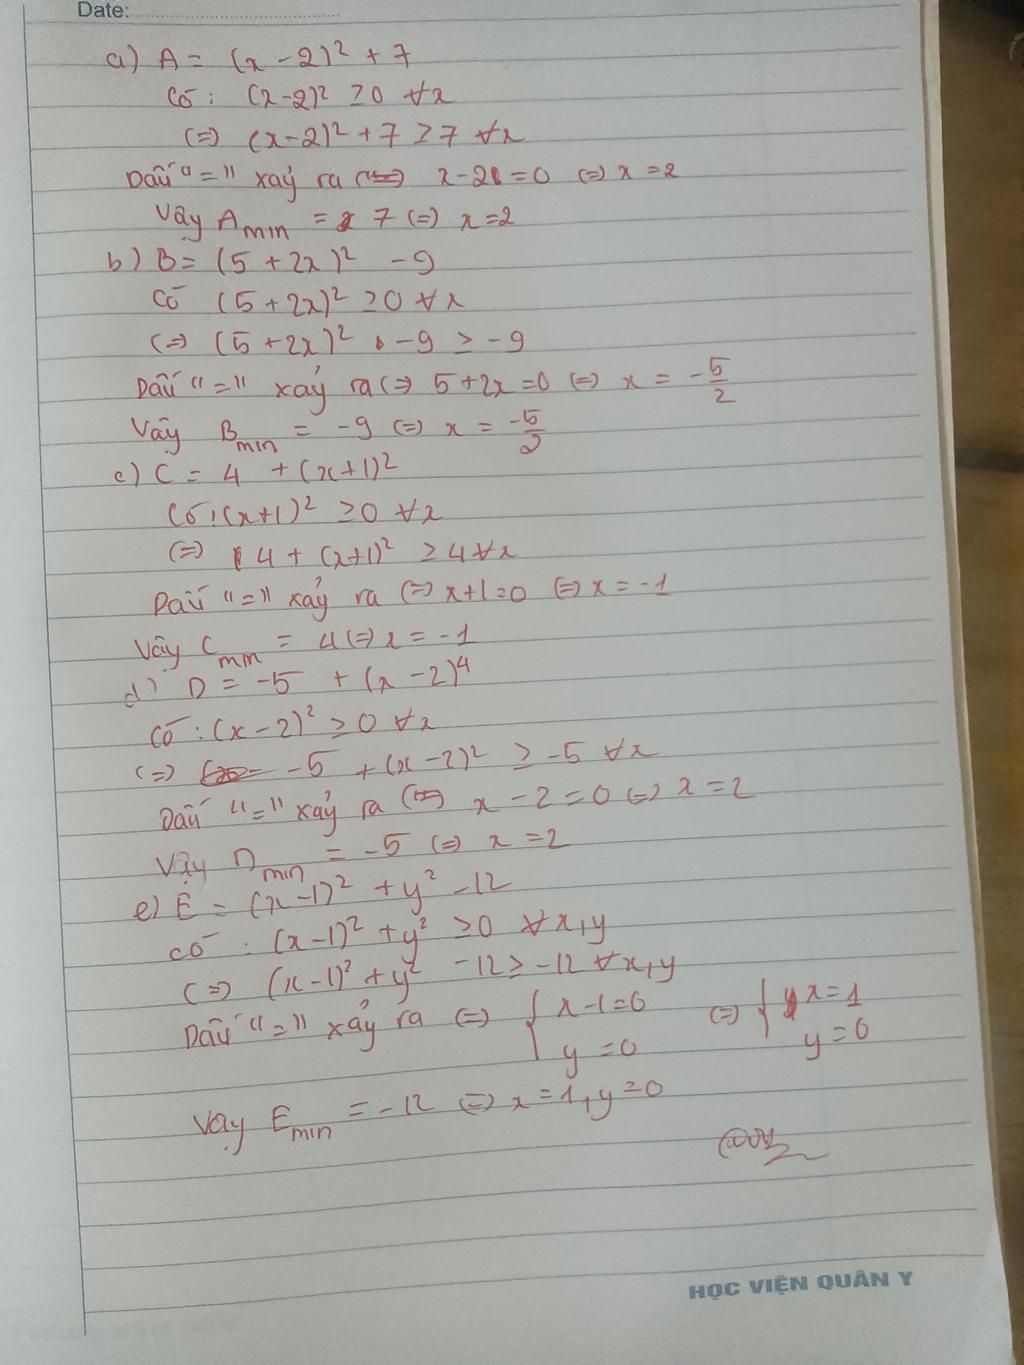 Date:
a) A = (x - 2)² + 7
Có : (x - 2)² ≥ 0 ∀x
(=) (x - 2)² + 7 ≥ 7 ∀x
Dấu "=" xảy ra (=) x - 2 = 0 (=) x = 2
Vậy Amin = 7 (=) x = 2
b) B = (5 + 2x)² - 9
Có (5 + 2x)² ≥ 0 ∀x
(=) (5 + 2x)² - 9 ≥ -9
Dấu "=" xảy ra (=) 5 + 2x = 0 (=) x = -5/2
Vậy Bmin = -9 (=) x = -5/2
c) C = 4 + (x+1)²
Có : (x+1)² ≥ 0 ∀x
(=) 4 + (x+1)² ≥ 4 ∀x
Dấu "=" xảy ra (=) x+1 = 0 (=) x = -1
Vậy Cmin = 4 (=) x = -1
d) D = -5 + (x - 2)⁴
Có : (x - 2)² ≥ 0 ∀x
(=) -5 + (x - 2)² ≥ -5 ∀x
Dấu "=" xảy ra (=) x - 2 = 0 (=) x = 2
Vậy Dmin = -5 (=) x = 2
e) E = (x - 1)² + y² - 12
có : (x - 1)² + y² ≥ 0 ∀x,y
(=) (x - 1)² + y² - 12 ≥ -12 ∀x,y
Dấu "=" xảy ra (=) { x - 1 = 0 (=) { x = 1
y = 0 y = 0
Vậy Emin = -12 (=) x = 1, y = 0
HỌC VIỆN QUÂN Y